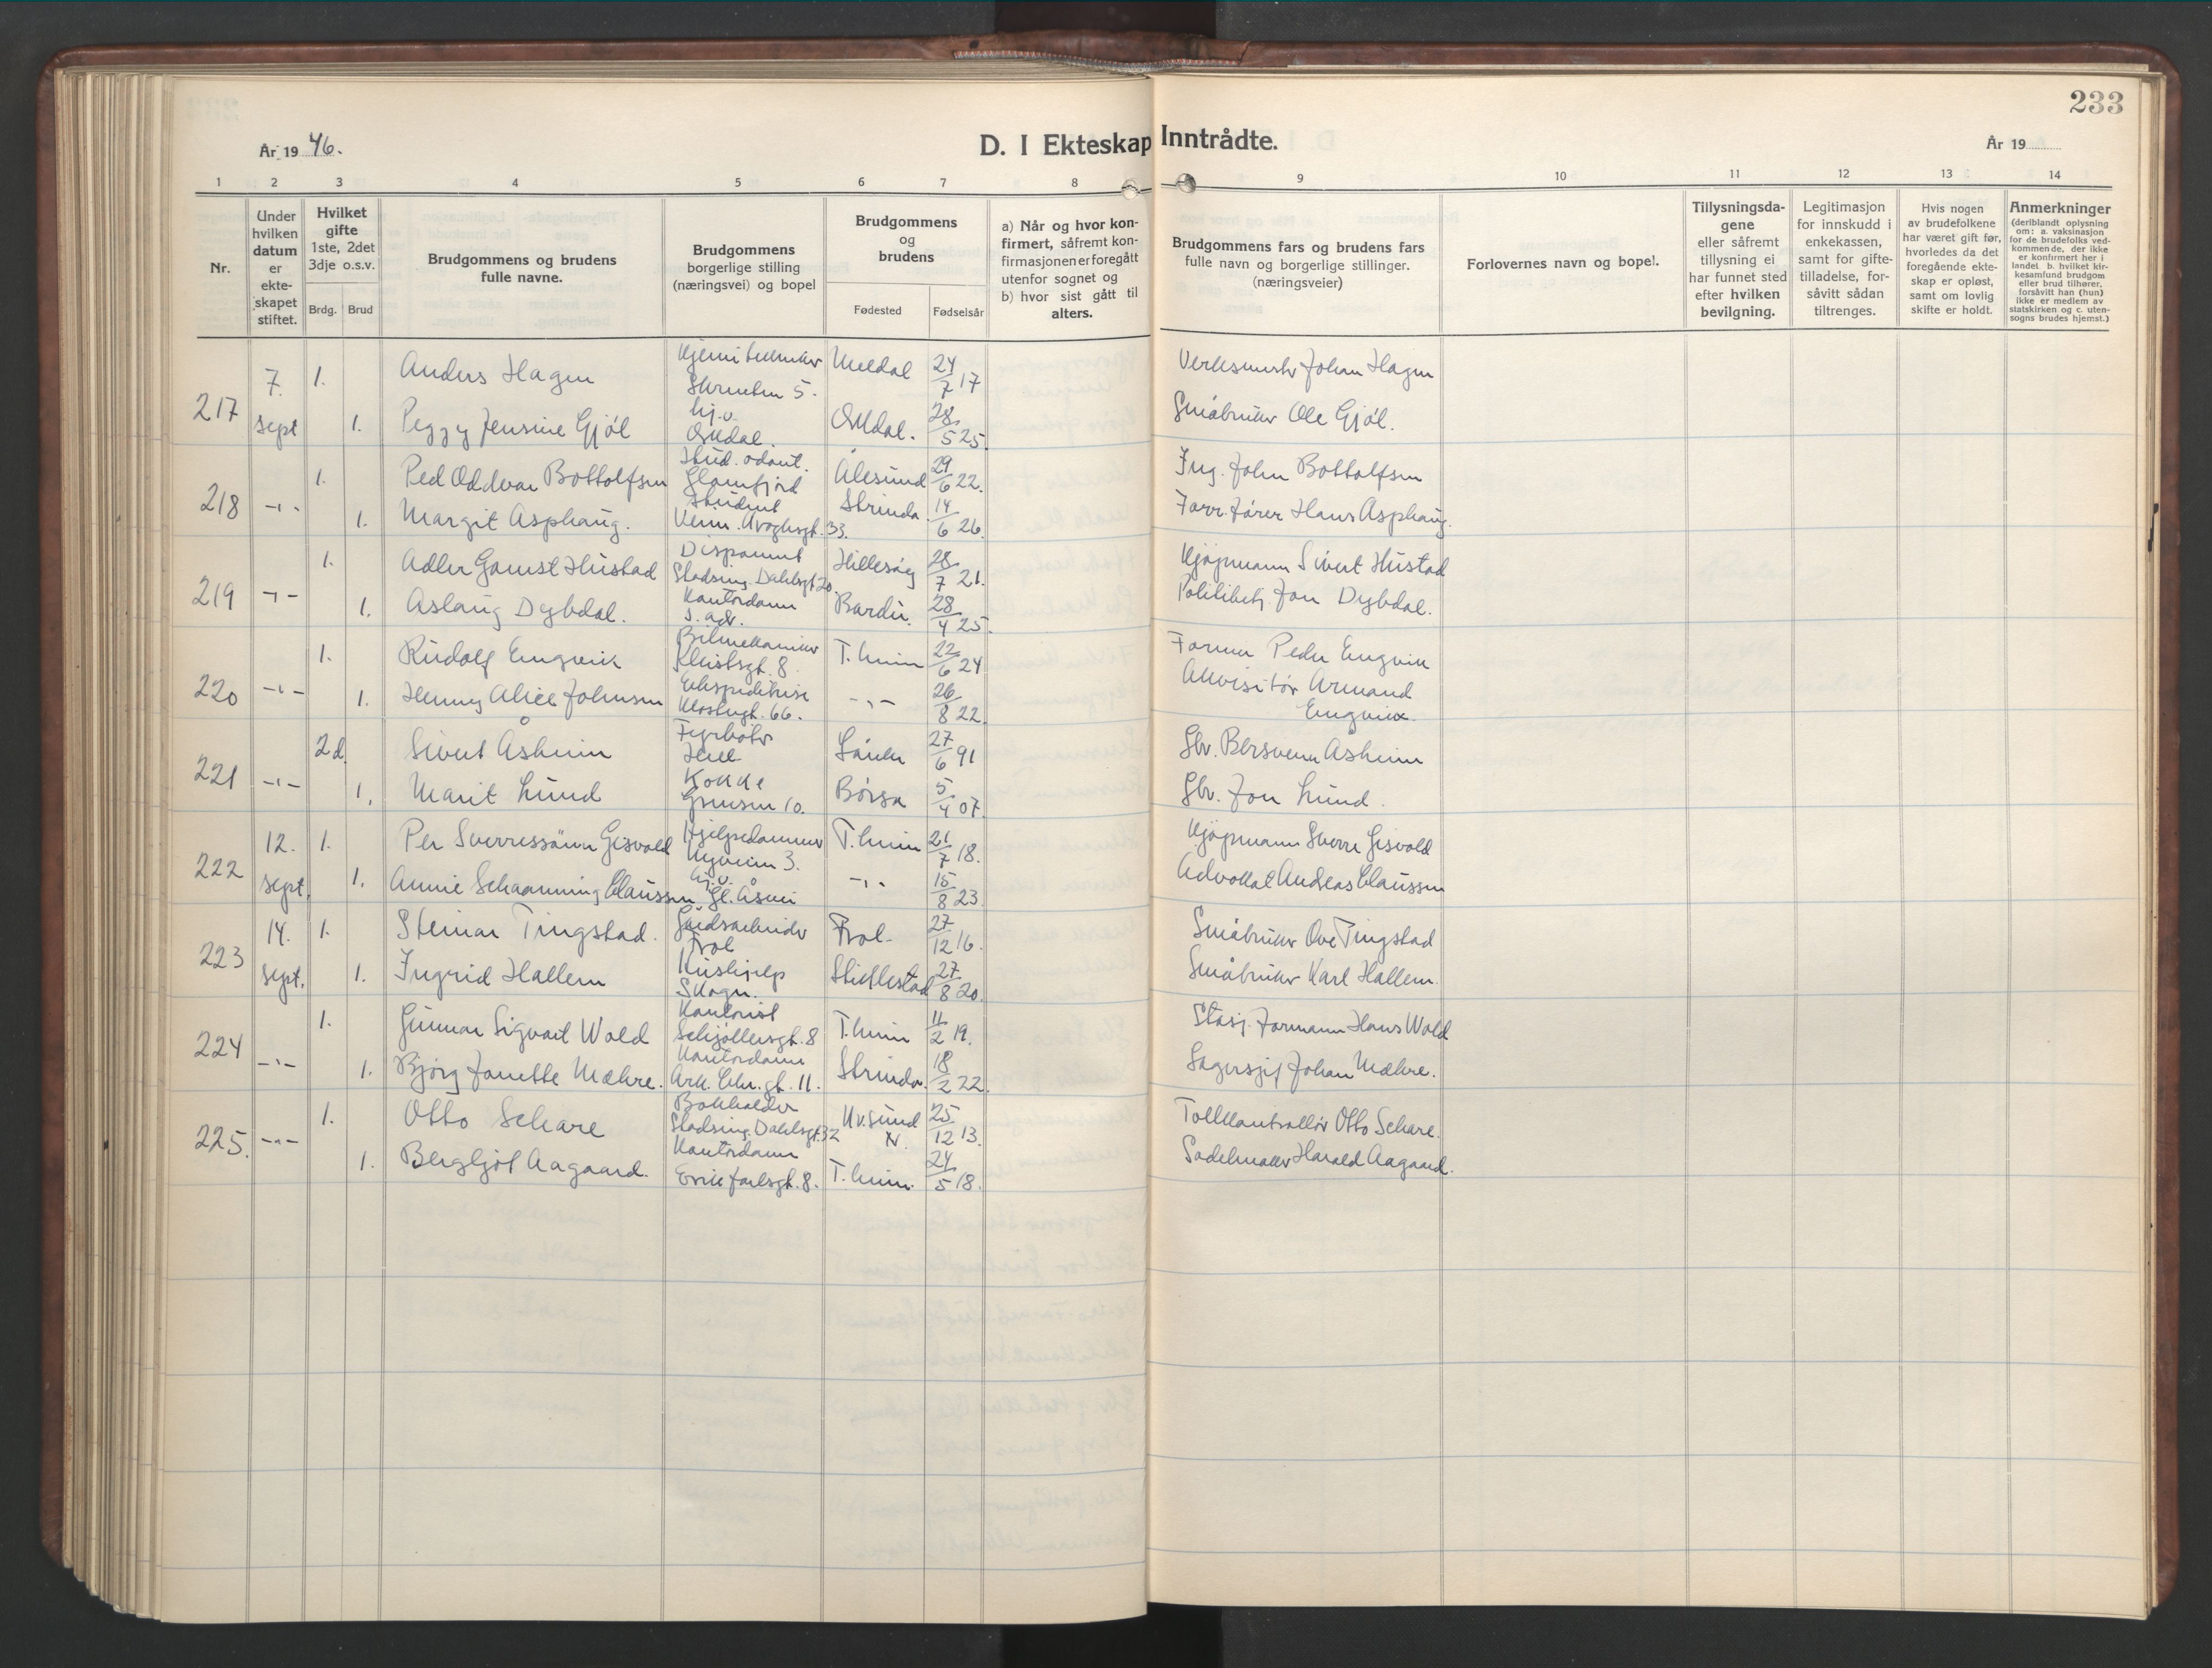 233
År 19 46.
D. I Ekteskap Inntrådte.
År 19
1 2 3 4 5 6 7 8 9 10 11 12 13 14
Nr.
Under hvilken datum er ekte- skapet stiftet.
Hvilket gifte 1ste, 2det 3dje o.s.v.
Brdg. Brud
Brudgommens og brudens fulle navne.
Brudgommens borgerlige stilling (næringsvei) og bopel
Brudgommens og brudens
Fødested Fødselsår
a) Når og hvor kon- firmert, såfremt kon- firmasjonen er foregått utenfor sognet og b) hvor sist gått til alters.
Brudgommens fars og brudens fars fulle navn og borgerlige stillinger. (næringsveier)
Forlovernes navn og bopel.
Tillysningsda- gene eller såfremt tillysning ei har funnet sted efter hvilken bevilgning.
Legitimasjon for innskudd i enkekassen, samt for gifte- tilladelse, for- såvitt sådan tiltrenges.
Hvis nogen av brudefolkene har været gift før, hvorledes da det foregående ekte- skap er opløst, samt om lovlig skifte er holdt.
Anmerkninger (deriblandt oplysning om: a. vaksinasjon for de brudefolks ved- kommende, der ikke er konfirmert her i landet. b. hvilket kir- kesamfund brudgom eller brud tilhører, forsåvitt han (hun) ikke er medlem av statskirken og c. uten- sogns brudes hjemst.)
217 7. sept 1. Anders Hagen Kjemitekniker Meldal 24/7 17 Johan Hagen
1. Peggy Jensine Gjøl hj.v. Oppdal. Oppdal. 28/5 25. Småbruker Ole Gjøl.
218 -"- 1. Ped Oddvar Bottolfsen Stud. odont. Glomfjord Ålesund 29/6 22. Ing. John Bottolfsen
1. Margit Asphaug. Student 33. Strinda. 14/6 26. Hans Asphaug.
219 -"- 1. Adler Gamst Hustad Disponent Stadsing. Dahlsgt 20. Hillesøy 28/7 21. Kjøpmann Sivert Hustad
1. Aslaug Dybdal. Kontordame s. adr. Bardu. 28/4 25. Politibetj. Jon Dybdal.
220 -"- 1. Rudolf Engvik Bilmekaniker 8. T.heim 22/6 24 Former Peder Engvik
1. Henny Alice Johnsen Ekspeditrise Klostergt. 66. -"- 26/8 22. Akvisitør Armand Engvik.
221 -"- 2d. Sivert Åsheim Fyrbøter Hell Lånke 27/6 91 Gbr. Bersvenn Åsheim
1. Marit Lund Kokke Grensen 10. Børsa 5/4 07. Gbr. Jon Lund.
222 12. sept. 1. Per Sverressønn Gisvold Hjelpedommer Nyveien 3. T.heim 21/7 18. Kjøpmann Sverre Gisvold
1. Annie Schaanning Claussen hj.v. Gl. Åsvei -"- 15/8 23. Advokat Andreas Claussen
223 14. sept. 1. Steinar Tingstad. Gårdsarbeider Frol Frol. 27/12 16. Småbruker Ove Tingstad
1. Ingrid Hallem Hushjelp Skogn. Stiklestad 27/8 20. Småbruker Karl Hallem.
224 -"- 1. Gunnar Sigvart Wold Kontorist Schjøllersgt. 8 T.heim 11/2 19. Stasj. formann Hans Wold
1. Bjørg Janette Mæhre. Kontordame Ark. Chr. gt. 11. Strinda. 18/2 22. Lagersjef Johan Mæhre.
225. -"- 1. Otto Schare Bokholder Stadsing. Dahlsgt. 32 Kr.sund N. 25/12 13. Tollkontrollør Otto Schare.
1. Bergljot Aagaard. Kontordame Erik Jarlsgt. 8. T.heim. 24/5 18. Sadelmaker Harald Aagaard.